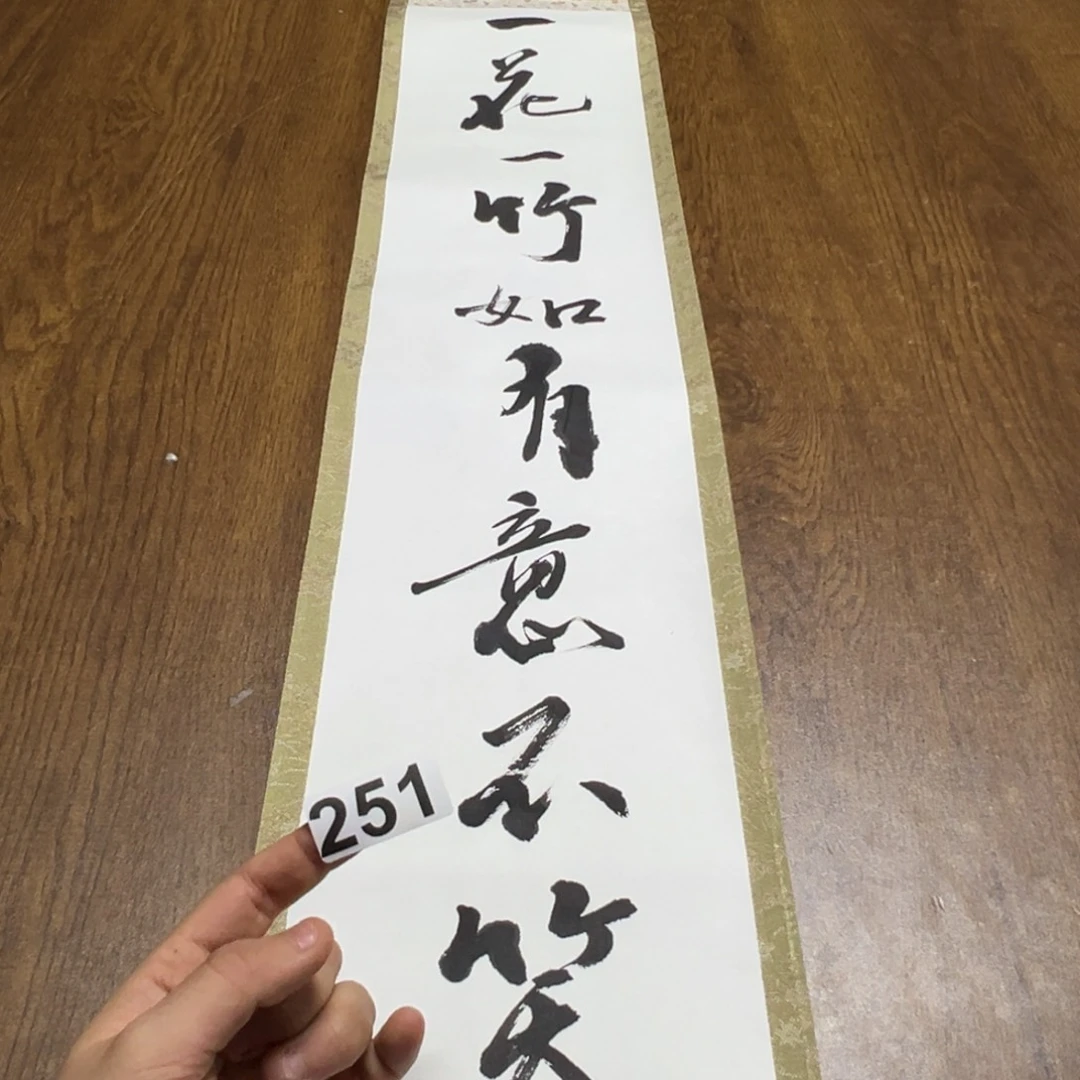 一花一竹如有意不笑
251